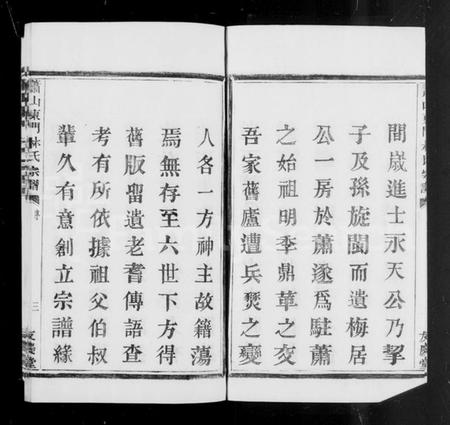 間歲進士永天公乃挈
子及孫旋閩而遺梅居
公一房於蕭遂爲駐蕭
之始祖明季鼎革之交
吾家舊廬遭兵燹之變
人各一方神主故籍蕩
焉無存至六世下方得
舊版畱遺老耆傳語查
考有所依據祖父伯叔
輩久有意創立宗譜緣
蕭山東門林氏宗譜
三
友慶堂